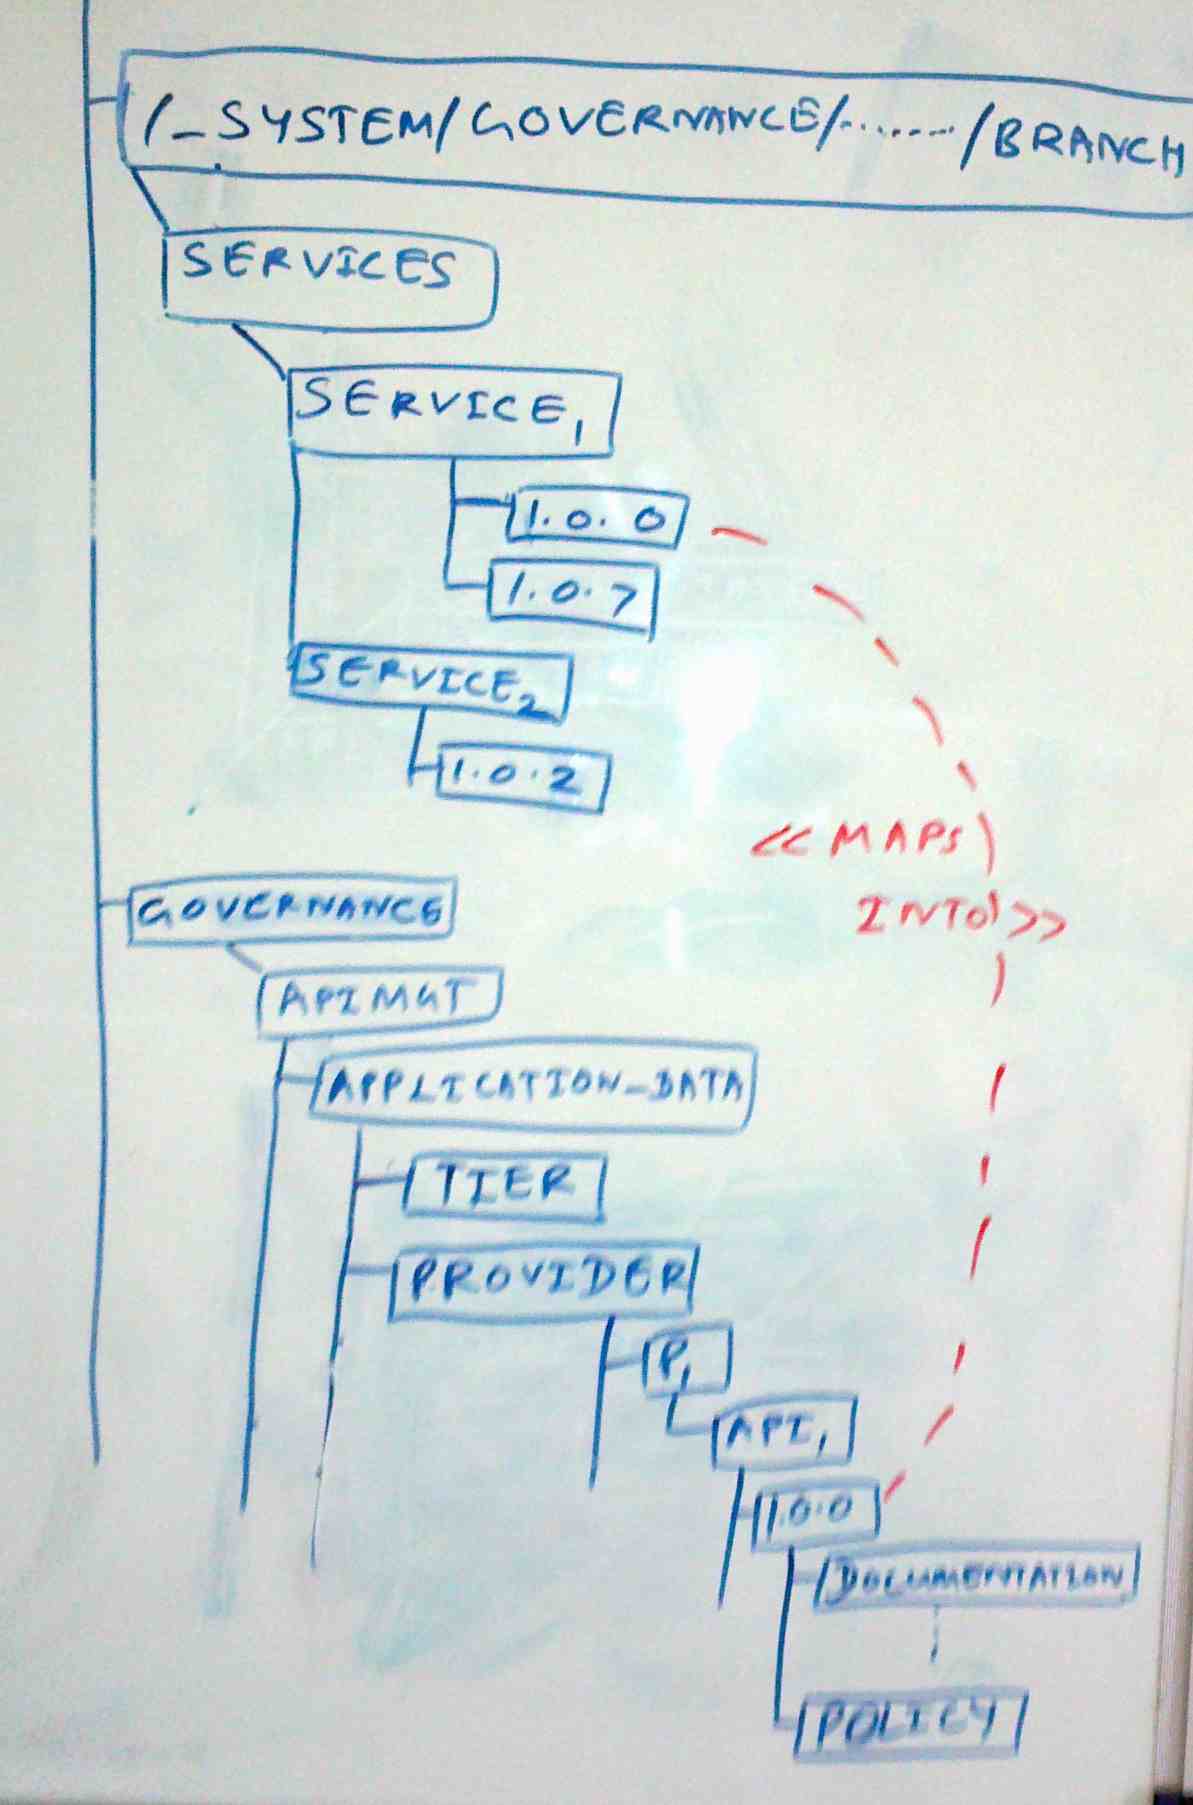 /_SYSTEM/GOVERNANCE/......./BRANCH
SERVICES
SERVICE1
1.0.0
1.0.7
SERVICE2
1.0.2
<< MAPS
INTO >>
GOVERNANCE
APIMGT
APPLICATION_DATA
TIER
PROVIDER
P1
API1
1.0.0
DOCUMENTATION
POLICY